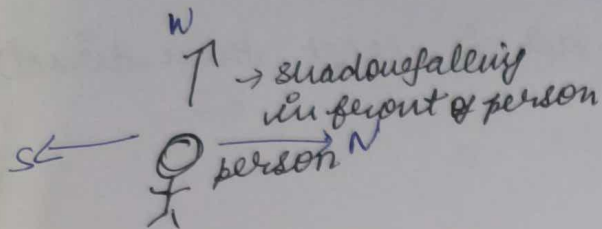 W
→ shadow falling
in front of person
S person N